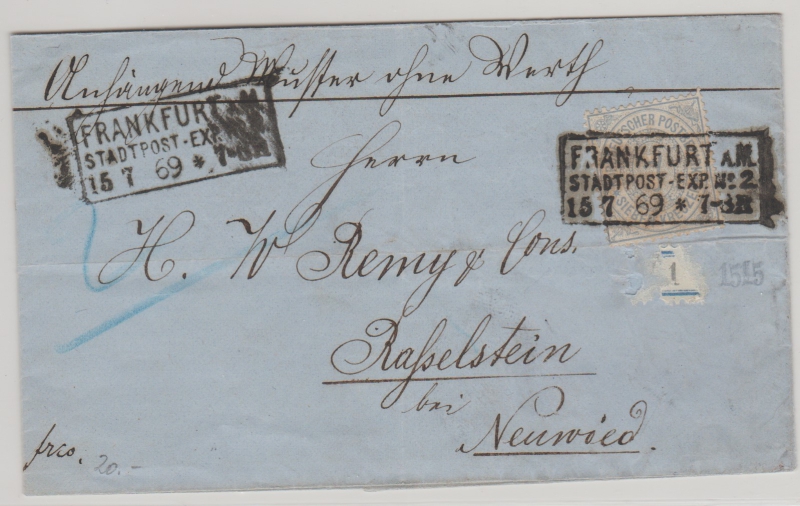 Anhängend Muster ohne Werth
FRANKFURT A.M.
STADTPOST-EXP.
15 7 69 * 7-8N
SCHER POST
SIEBEN KREUZER
FRANKFURT A.M.
STADTPOST-EXP. No 2.
15 7 69 * 7-8N
Herrn
H. W Remy & Cons.
1
1515
Rasselstein
bei
Neuwied.
frco.
20.-